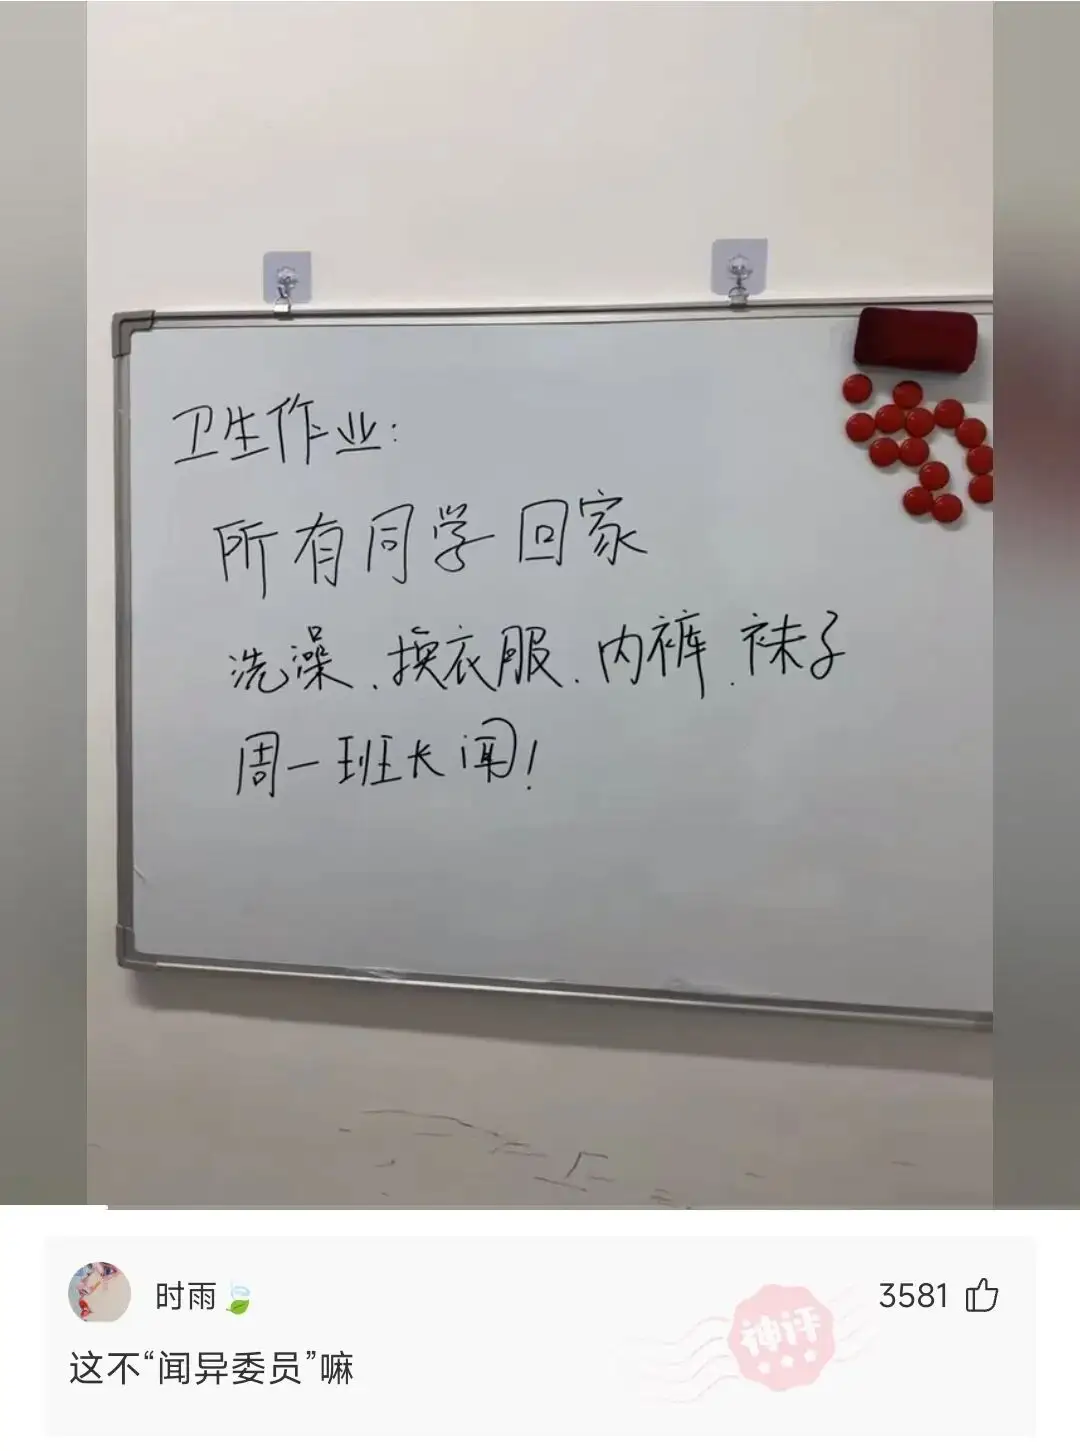 卫生作业:
所有同学回家
洗澡、换衣服、内裤、袜子
周一班长闻!
时雨🍃
3581
这不“闻异委员”嘛
神评